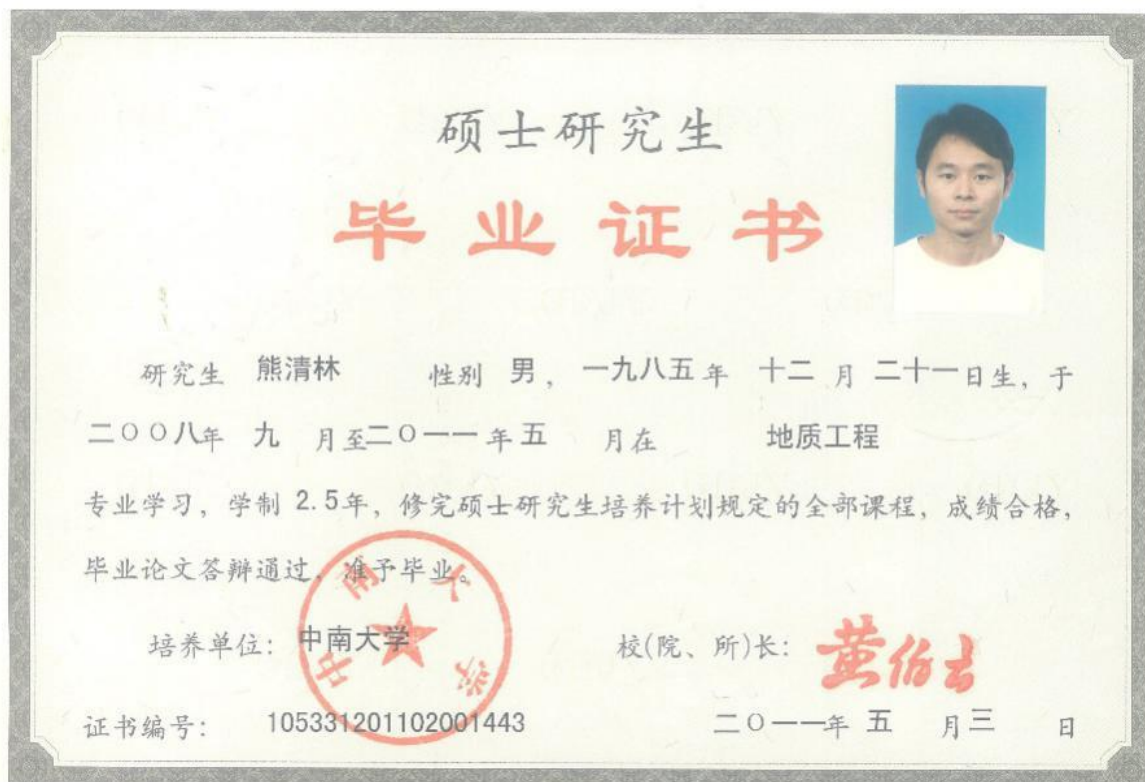 硕士研究生
毕业证书
研究生 熊清林 性别 男，一九八五年 十二 月 二十一日生，于
二〇〇八年 九 月至二〇一一年五 月在 地质工程
专业学习，学制 2.5年，修完硕士研究生培养计划规定的全部课程，成绩合格，
毕业论文答辩通过，准予毕业。
中南大学
培养单位：中南大学 校(院、所)长：黄伯云
证书编号：105331201102001443 二〇一一年 五 月三 日